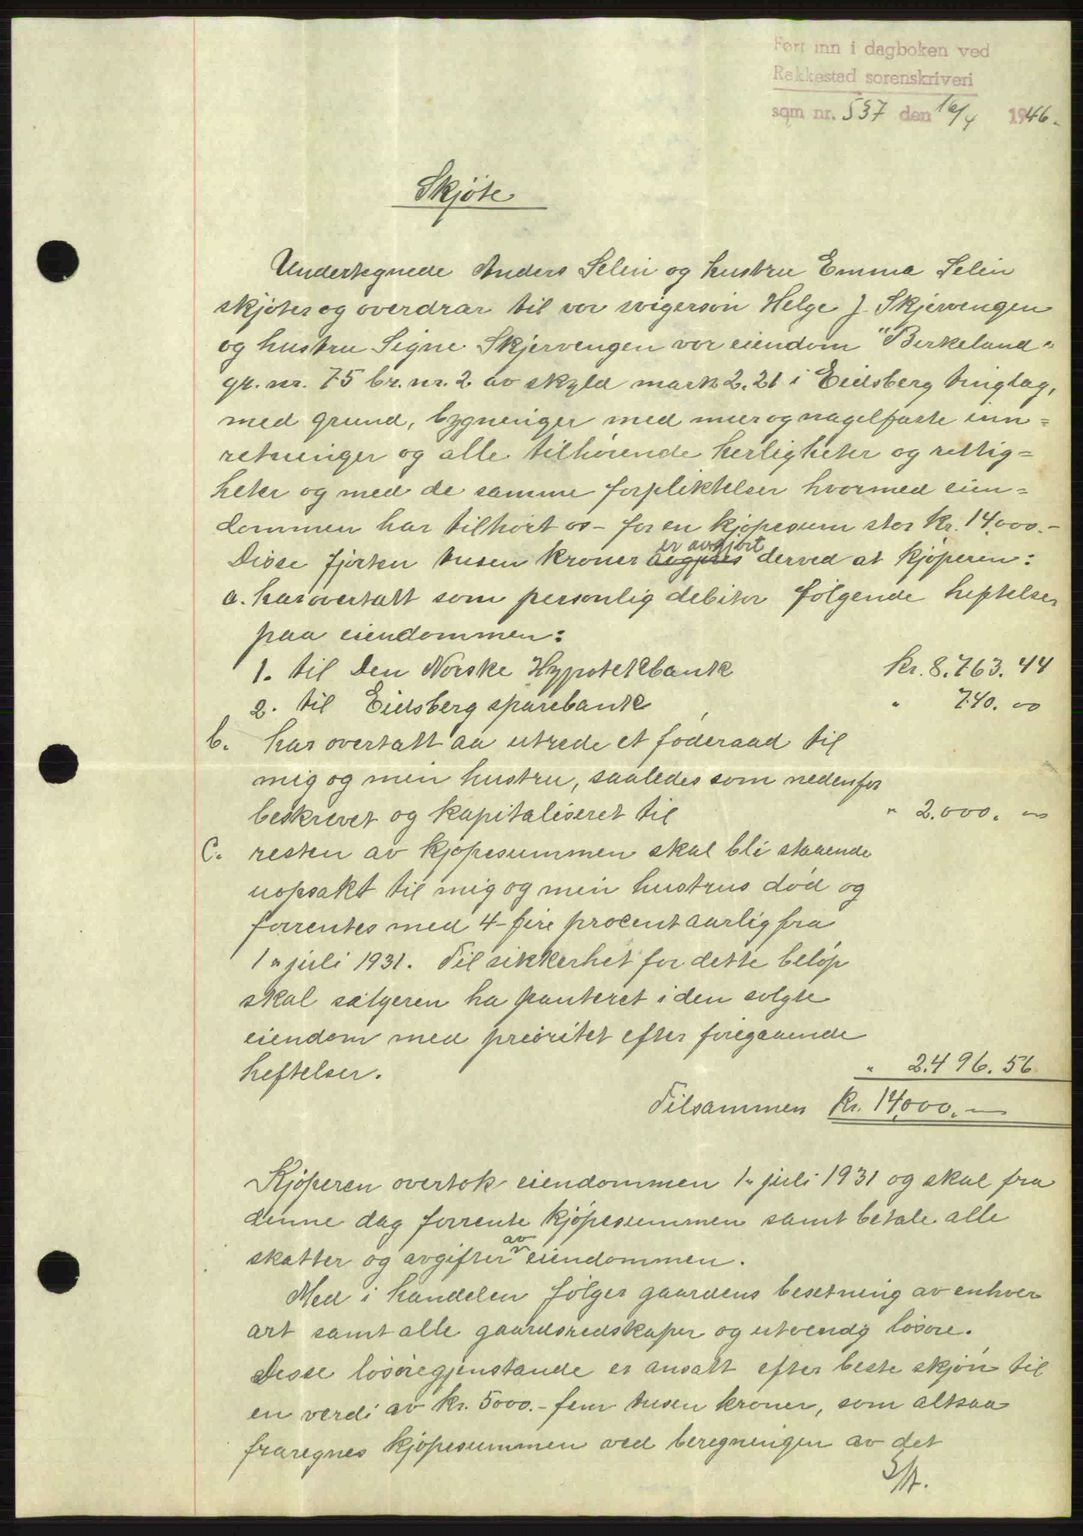 Ført inn i dagboken ved
Rakkestad sorenskriveri
som nr. 537 den 16/4 1946.
Skjøte
Undertegnede Anders Selin og hustru Emma Selin
skjøter og overdrar til vor svigersøn Helge J. Skjervengen
og hustru Signe Skjervengen vor eiendom "Berkeland"
gr. nr. 75 br. nr. 2 av skyld mark 2.21 i Eidsberg tinglag,
med grund, bygninger med mur og nagelfaste inn=
retninger og alle tilhørende herligheter og rettig=
heter og med de samme forpliktelser hvormed eien=
dommen har tilhørt os – for en kjøpesum stor kr. 14,000.–
er avgjort
Disse fjorten tusen kroner avgjøres derved at kjøperen:
a. har overtatt som personlig debitor følgende heftelser
paa eiendommen:
1. til Den Norske Hypotekbank kr. 8.763.44
2. til Eidsberg sparebank " 740.00
b. har overtatt aa utrede et føderaad til
mig og min hustru, saaledes som nedenfor
beskrevet og kapitaliseret til " 2.000.00
c. resten av kjøpesummen skal bli staaende
uopsakt til mig og min hustrus død og
forrentes med 4-fire procent aarlig fra
1" juli 1931. Til sikkerhet for dette beløp
skal sælgeren ha panteret i den solgte
eiendom med prioritet efter foregaaende
heftelser. " 2.496.56
Tilsammen kr. 14,000.–
Kjøperen overtok eiendommen 1" juli 1931 og skal fra
denne dag forrente kjøpesummen samt betale alle
av
skatter og avgifter eiendommen.
Med i handelen følger gaardens besetning av enhver
art samt alle gaardsredskaper og utvendg løsøre.
Disse løsøregjenstande er ansatt efter beste skjøn til
en verdi av kr. 5000.- fem tusen kroner, som altsaa
fraregnes kjøpesummen ved beregningen av det